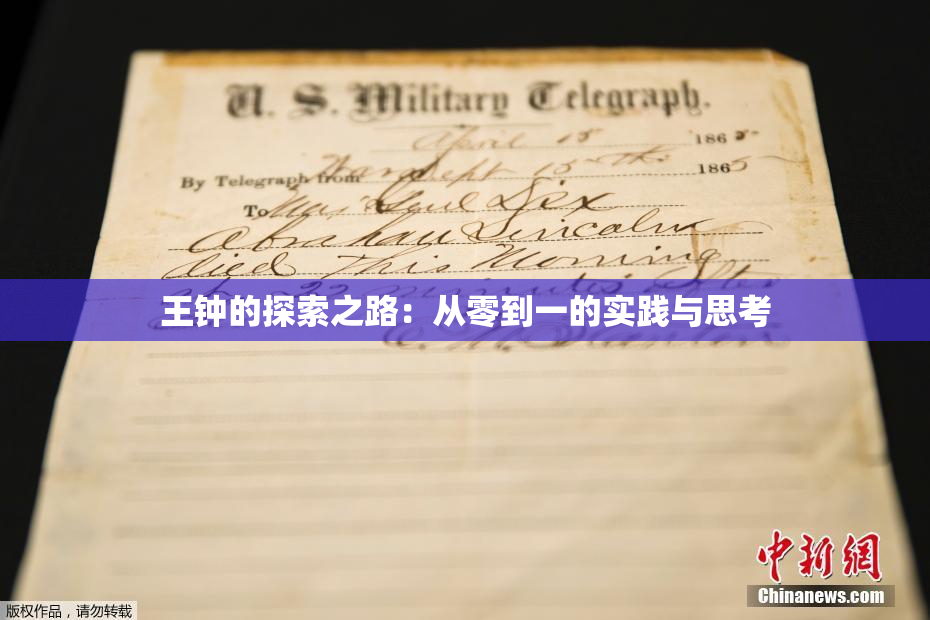 U. S. Military Telegraph.
April 15 1865
By Telegraph from War Dept 15th 1865
To Maj Genl Dix
Abraham Lincoln
died This Morning
at 22 minutes after
王钟的探索之路：从零到一的实践与思考
中新網
Chinanews.com
版权作品，请勿转载